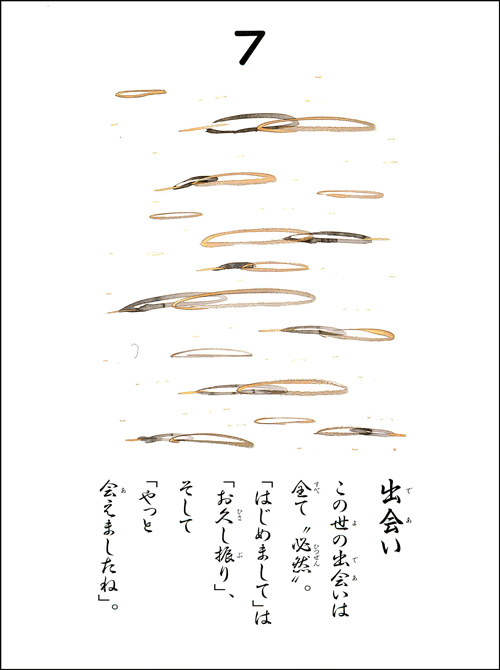 7
出会い
この世の出会いは
全て〝必然〟。
「はじめまして」は
「お久し振り」、
そして
「やっと
会えましたね」。